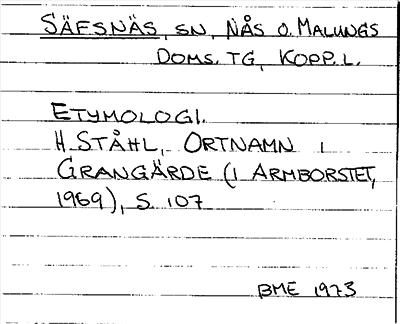 SÄFSNÄS, SN, NÅS O. MALUNGS
DOMS. TG, KOPP. L.
ETYMOLOGI.
H. STÅHL, ORTNAMN I
GRANGÄRDE (I ARMBORSTET,
1969), S. 107
BME 1973